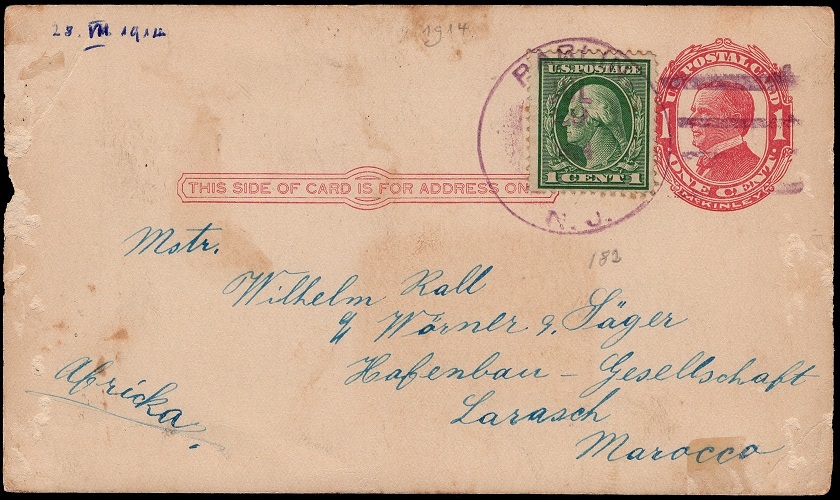 28. VII. 1914
1914.
N. J.
U.S. POSTAGE
1 CENT 1
U.S. POSTAL CARD
1 1
ONE CENT
McKINLEY
THIS SIDE OF CARD IS FOR ADDRESS
182
Mstr.
Wilhelm Rall
Wörner & Jäger
Hafenbau - Gesellschaft
Larasch
Marocco
Africka